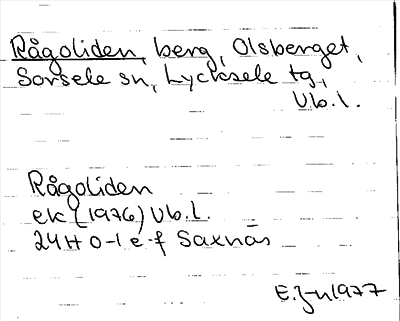 Rågoliden, berg, Olsberget,
Sorsele sn, Lycksele tg,
Vb.l.
Rågoliden
ek (1976) Vb.l.
24H 0-1 e-f Saxnäs
E.J-n 1977